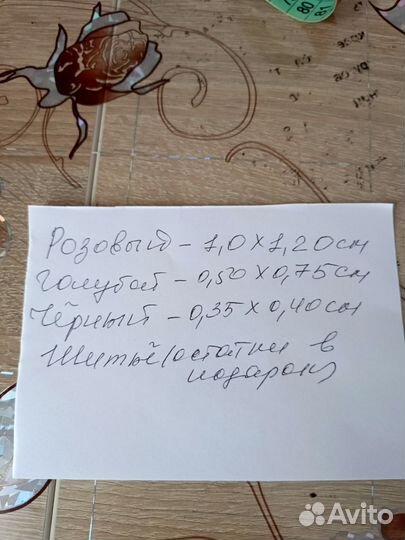 80 81
Розовый – 1,0 х 1,20 см
Голубой – 0,50 х 0,75 см
Чёрный – 0,35 х 0,40 см
Шитьё (остатки в
подарок)
Avito